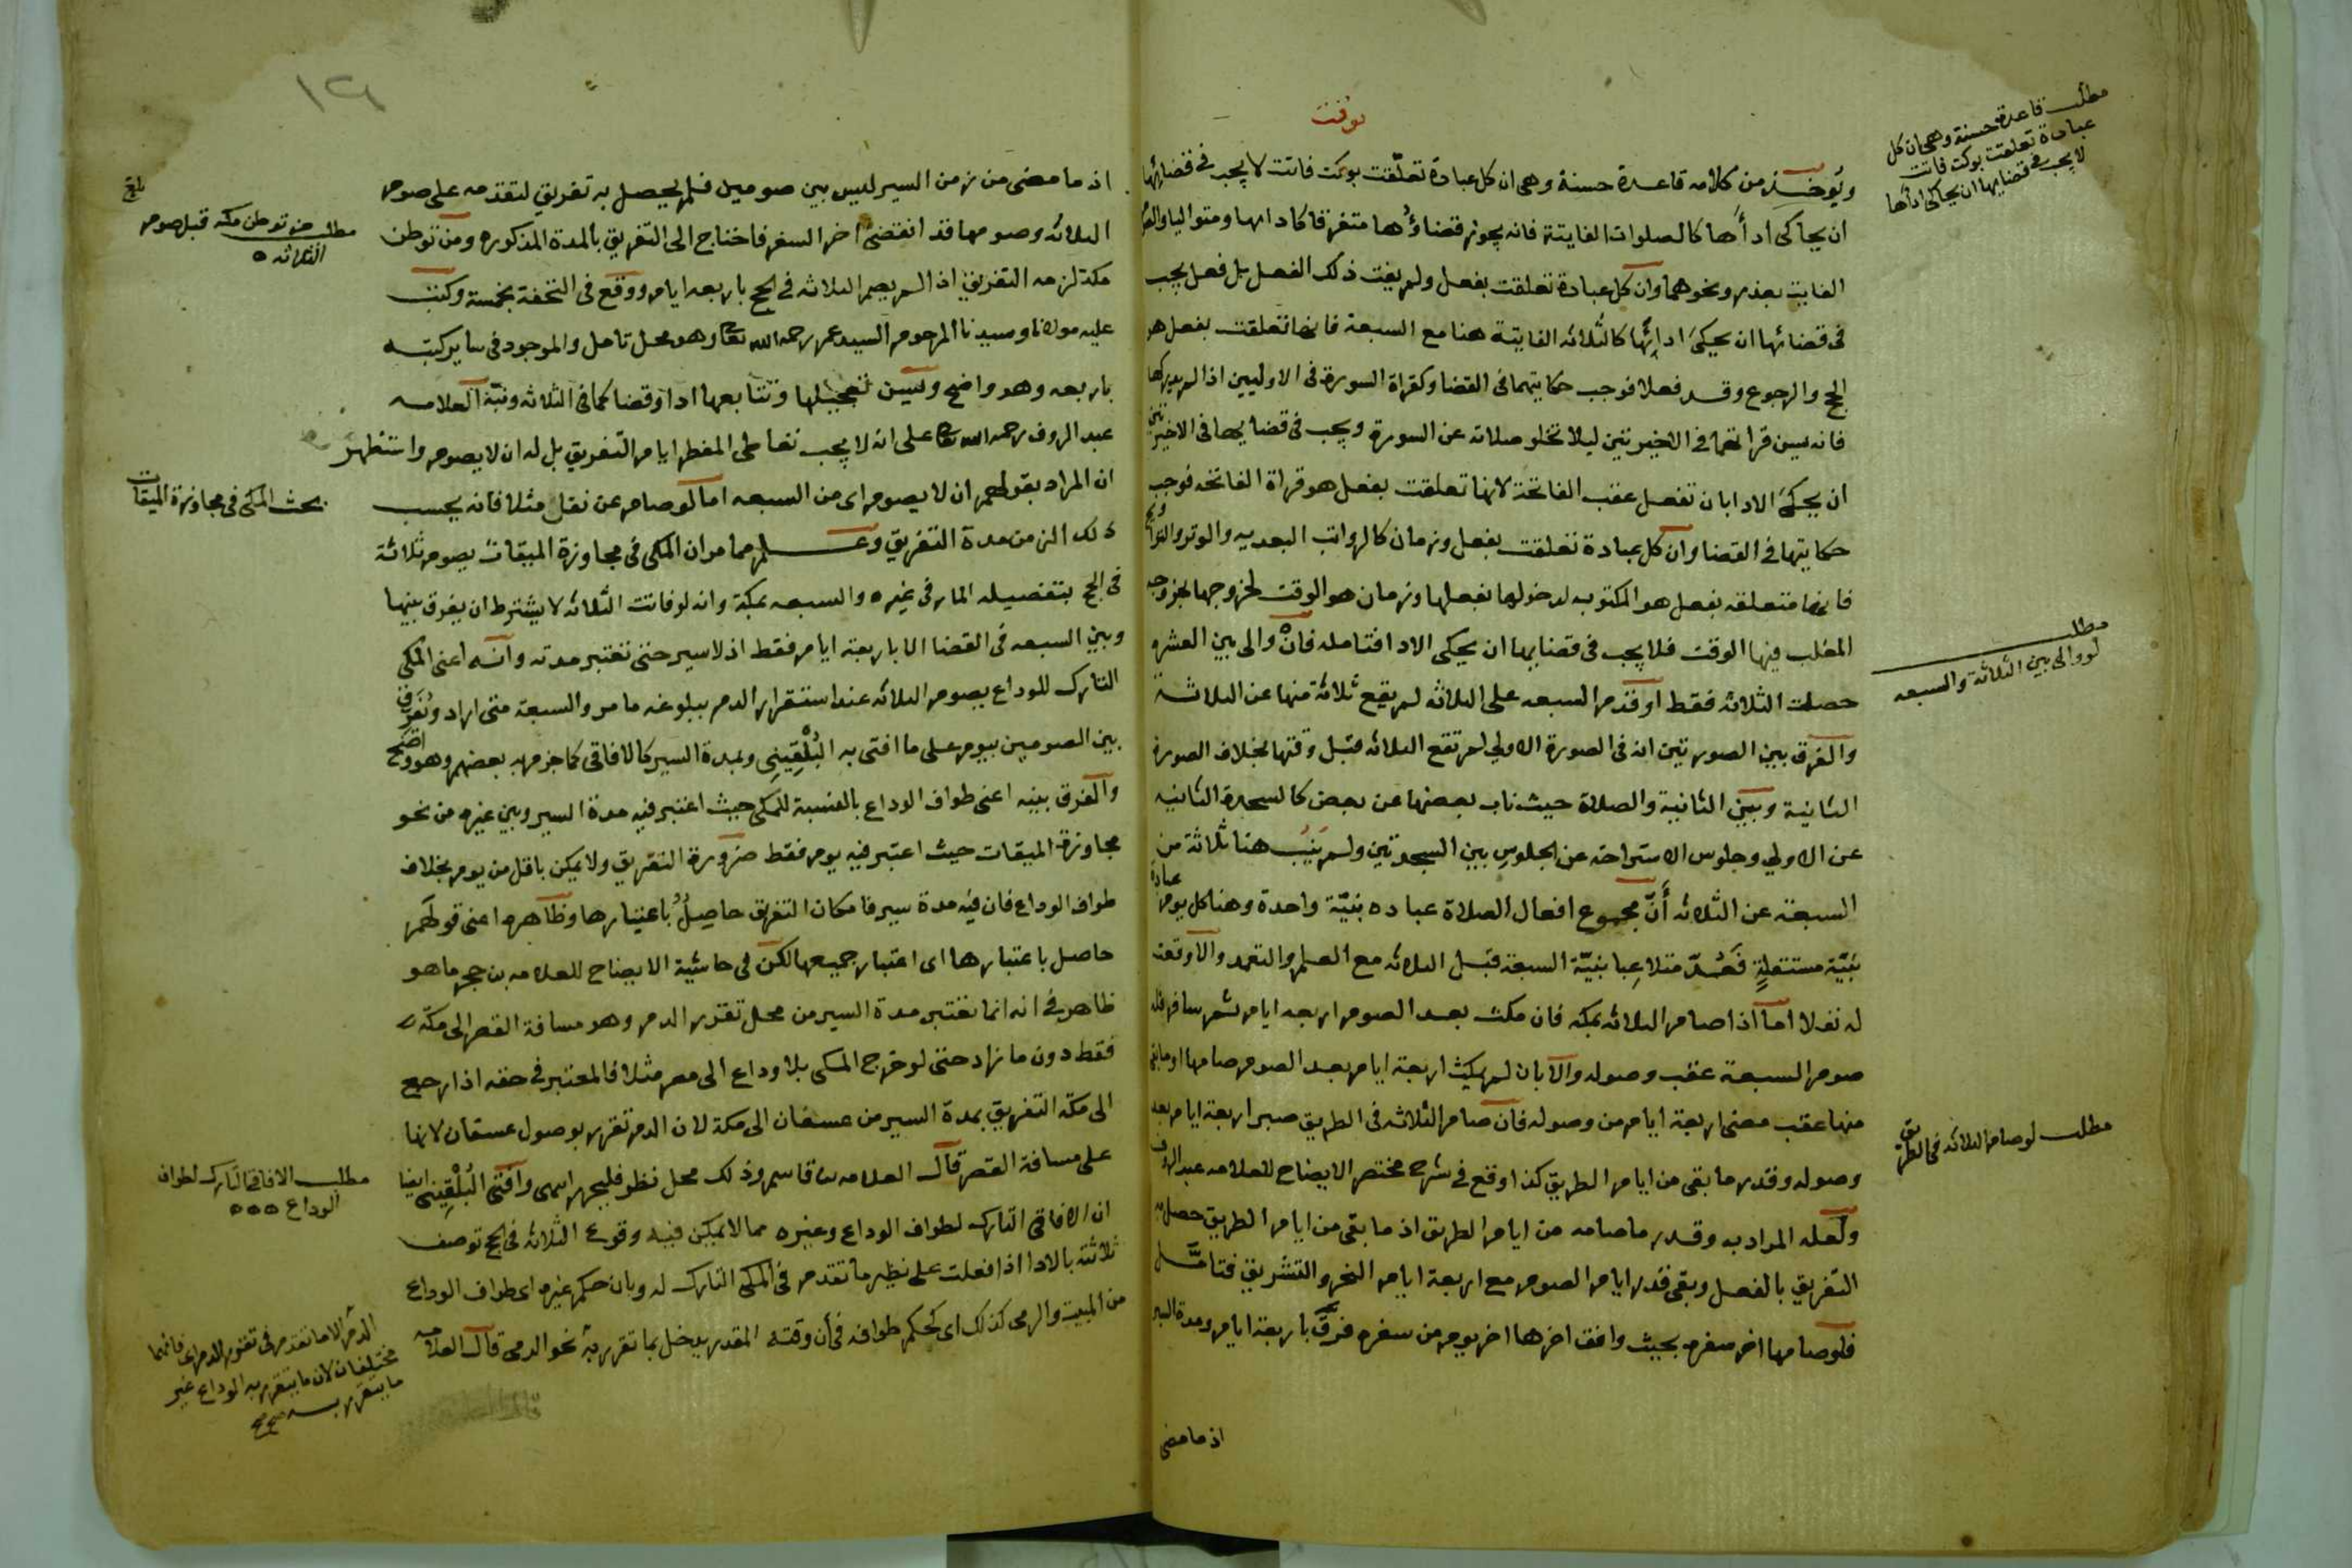 بوقت
ويوخذ من كلامه قاعدة حسنة وهى ان كل عبادة تعلّقت بوكت فاتت لا يجب فى قضائها
ان يحاكى ادأها كالصلوات الفايتة فانه يجوز قضاؤها متفرقا كادايها ومتواليا
الفايت بعذر ونحوهما وان كل عبادة تعلقت بفعل ولم يفت ذلك الفعل بل فعل يجب
فى قضائها ان يحكى ادائها كالثلاثه الفايتة هنا مع السبعة فانها تعلقت بفعل هو
الحج والرجوع وقد فعلا فوجب حكايتهما فى القضا وكقراة السورة فى الاوليين اذا لم يدركها
فانه يسن قراتها فى الاخيرتين ليلا تخلو صلاته عن السورة ويجب فى قضايها فى الاخيرتين
ان يحكى الادا بان تفصل عقب الفاتحة لانها تعلقت بفعل هو قراة الفاتحه فوجب
حكايتها فى القضا وان كل عبادة تعلقت بفعل وزمان كالرواتب البعديه والوتر والتراويح
فانها متعلقه بفعل هو المكتوبه لدخولها بفعلها وزمان هو الوقت لخروجها بخروجه
المغلب فيها الوقت فلا يجب فى قضايها ان يحكى الادا فتامله فانه والى بين العشره
حصلت الثلاثه فقط او قدم السبعه على الثلاثه لم يقع ثلاثة منها عن الثلاثة
والفرق بين الصورتين انه فى الصورة الاولى لم تقع الثلاثه قبل وقتها بخلاف الصورة
الثانية وبين الثانية والصلاة حيث ناب بعضها عن بعض كالسجدة الثانيه
عن الاولى وجلوس الاستراحه عن الجلوس بين السجدتين ولم ينب هنا ثلاثة من
السبعة عن الثلاثه أنّ مجموع افعال الصلاة عباده بنيّة واحدة وهنا كل يوم عبادة
بنيّة مستقلةٍ فعُدّ متلاعبا بنيّة السبعة قبل الثلاثه مع العلم والتعمد والا وقعت
له نفلا اما اذا صام الثلاثه بمكه فان مكث بعد الصوم اربعه ايام ثم سافر فله
صوم السبعة عقب وصوله والا بان لم يمكث اربعة ايام بعد الصوم صامها او ما بقى
منها عقب مضى اربعة ايام من وصوله فان صام الثلاثه فى الطريق صبر اربعة ايام بعد
وصوله وقدر ما بقى من ايام الطريق كذا وقع فى شرح مختصر الايضاح للعلامه عبد الروف
ولعله المراد به وقدر ما صامه من ايام الطريق اذ ما بقى من ايام الطريق حصل به
التفريق بالفصل وبقى قدر ايام الصوم مع اربعة ايام النحر والتشريق فتامّل
فلو صامها اخر سفره بحيث وافق اخرها اخر يوم من سفره فرق باربعة ايام ومدة السير
اذ ما مضى
مطلب قاعدة حسنة وهى ان كل
عبادة تعلقت بوكت فاتت
لا يجب فى قضايها ان يحاكى ادأها
مطلب
لو والى بين الثلاثة والسبعه
مطلب لو صام الثلاثه فى الطريق
١٢٦
اذ ما مضى من زمن السير ليس بين صومين فلم يحصل به تفريق لتقدمه على صوم
الثلاثه وصومها قد انقضى اخر السفر فاحتاج الى التفريق بالمدة المذكوره ومن توطن
مكة لزمه التفريق اذا لم يصم الثلاثه فى الحج باربعه ايام ووقع فى التحفة بخمسة وكتب
عليه مولانا وسيدنا المرحوم السيد عمر رحمه الله تعا وهو محل تامل والموجود فى ساير كتبه
باربعه وهو واضح ويسن تعجيلها وتتابعها ادا وقضا كما فى الثلاثه ونبّه العلامه
عبد الروف رحمه الله تعا على انه لا يجب تعاطى المفطر ايام التفريق بل له ان لا يصوم واستظهر
ان المراد بقولهم ان لا يصوم اى من السبعه اما لو صام عن نفل مثلا فانه يحسب
ذلك الزمن مدة التفريق وعلم مما مر ان المكى فى مجاوزة الميقات يصوم ثلاثة
فى الحج بتفصيله المار فى غيره والسبعه بمكة وانه لو فاتت الثلاثه لا يشترط ان يفرق بينها
وبين السبعه فى القضا الا باربعة ايام فقط اذ لا سير حتى تعتبر مدته وانه اعنى المكى
التارك للوداع يصوم الثلاثه عند استقرار الدم ببلوغه ما مر والسبعة متى اراد ويفرق
بين الصومين بيوم على ما افتى به البُلْقِينى وبمدة السير كالافاقى كما جزم به بعضهم وهو واضح
والفرق بينه اعنى طواف الوداع بالنسبة للمكى حيث اعتبر فيه مدة السير وبين غيره من نحو
مجاوزة الميقات حيث اعتبر فيه يوم فقط ضرورة التفريق ولا يمكن باقل من يوم بخلاف
طواف الوداع فان فيه مدة سير فامكان التفريق حاصلٌ باعتبارها وظاهره اعنى قولهم
حاصل باعتبارها اى اعتبار جميعها لكن فى حاشية الايضاح للعلامه بن حجر ما هو
ظاهر فى انه انما تعتبر مدة السير من محل تقرر الدم وهو مسافة القصر الى مكة
فقط دون ما زاد حتى لو خرج المكى بلا وداع الى مصر مثلا فالمعتبر فى حقه اذا رجع
الى مكة التفريق بمدة السير من عسفان الى مكة لان الدم تقرر بوصول عسفان لانها
على مسافة القصر قال العلامه بن قاسم وذلك محل نظر فليحرر اسمى وافتى البُلْقِينى ايضا
ان الافاقى التارك لطواف الوداع وغيره مما لا يمكن فيه وقوع الثلاثه فى الحج توصف
ثلاثته بالادا اذا فعلت على نظير ما تقدم فى المكى التارك له وبان حكم غيره اى طواف الوداع
من المبيت والرمى كذلك اى كحكم طوافه فى أن وقته المقدر يدخل بما تقرر به نحو الدمى قال العلامه
بلغ
مطلب من توطن مكه قبل صوم
الثلاثه ٥
بحث المكى فى مجاوزة الميقات
مطلب الافاقى التارك لطواف
الوداع ٥٥٥
الدم الا ما تقدم فى تقرر الدم اى فانهما
مختلفان لان ما يتقرر به الوداع غير
ما يتقرر به